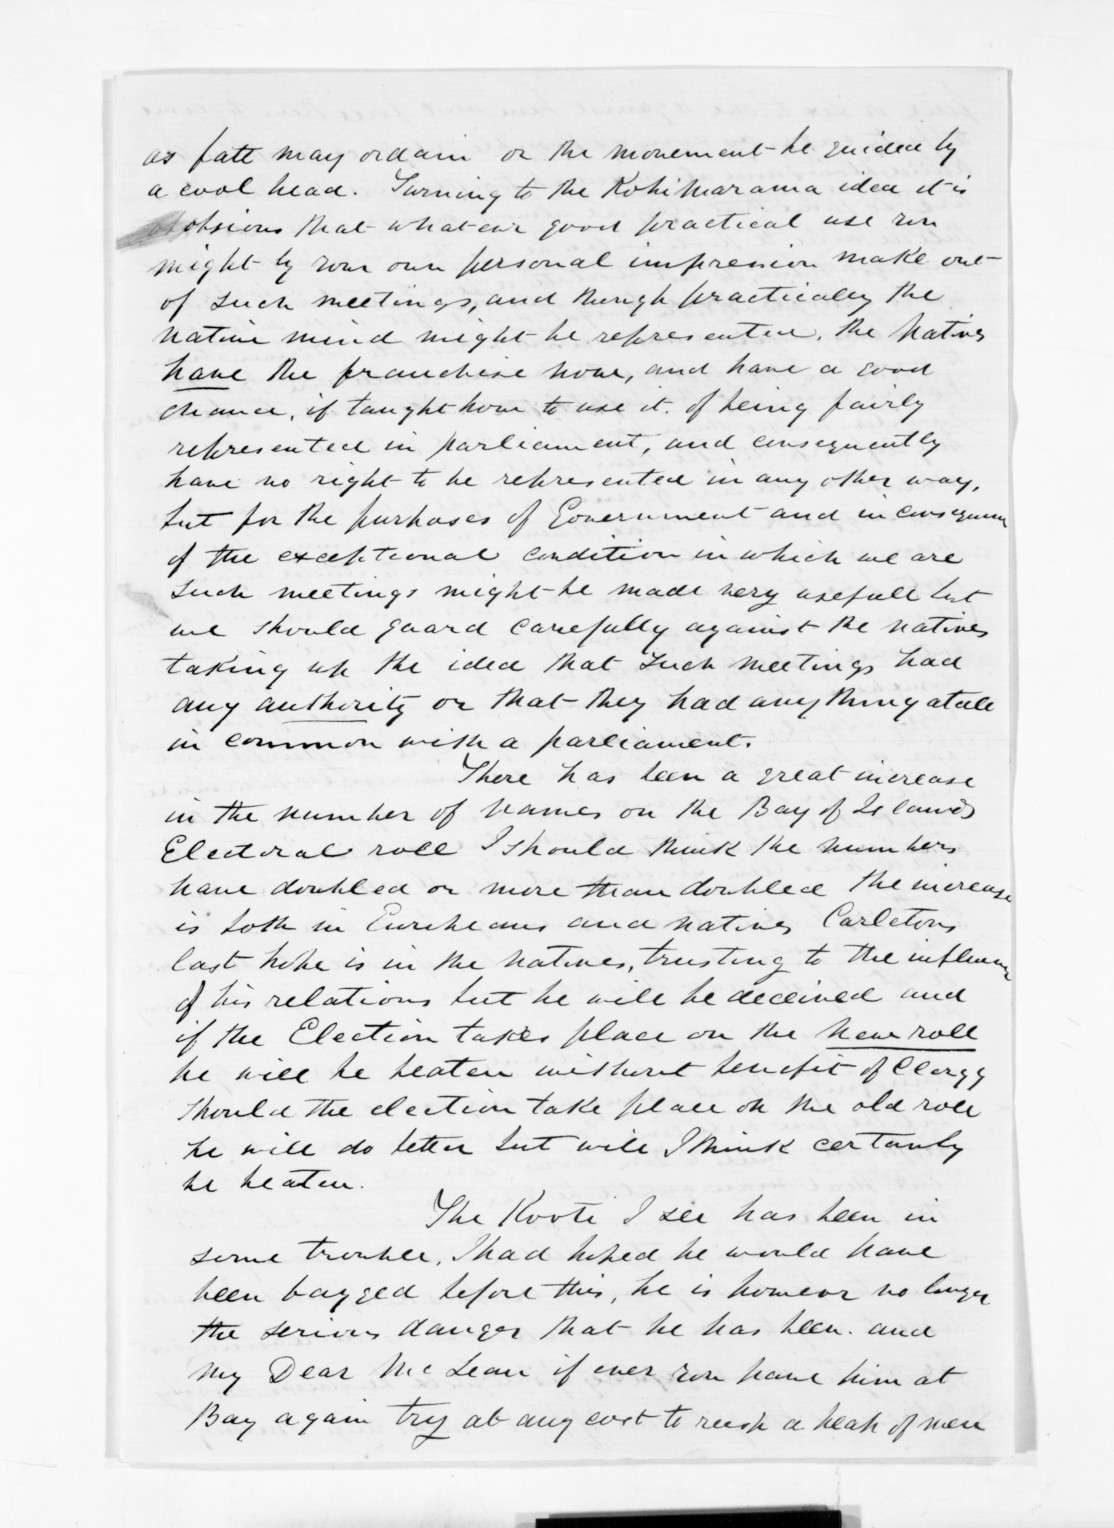 as fate may ordain or the movement be guided by
a cool head. Turning to the Kohimarama idea it is
obvious that whatever good practical use you
might by your own personal impression make out
of such meetings, and though practically the
native mind might be represented, the Natives
have the franchise now, and have a good
chance, if taught how to use it, of being fairly
represented in parliament, and consequently
have no right to be represented in any other way,
but for the purposes of Government and in consequence
of the exceptional condition in which we are
such meetings might be made very usefull but
we should guard carefully against the natives
taking up the idea that such meetings had
any authority or that they had any thing atall
in common with a parliament.
There has been a great increase
in the number of names on the Bay of Islands
Electoral roll I should think the numbers
have doubled or more than doubled the increase
is both in Europeans and natives Carletons
last hope is in the natives, trusting to the influence
of his relations but he will be deceived and
if the Election takes place on the new roll
he will be beaten without benefit of Clergy
should the election take place on the old roll
he will do better but will I think certainly
be beaten.
The Kooti I see has been in
some trouble, I had hoped he would have
been bagged before this, he is however no longer
the serious danger that he has been. and
my Dear McLean if ever you have him at
Bay again try at any cost to rush a heap of men